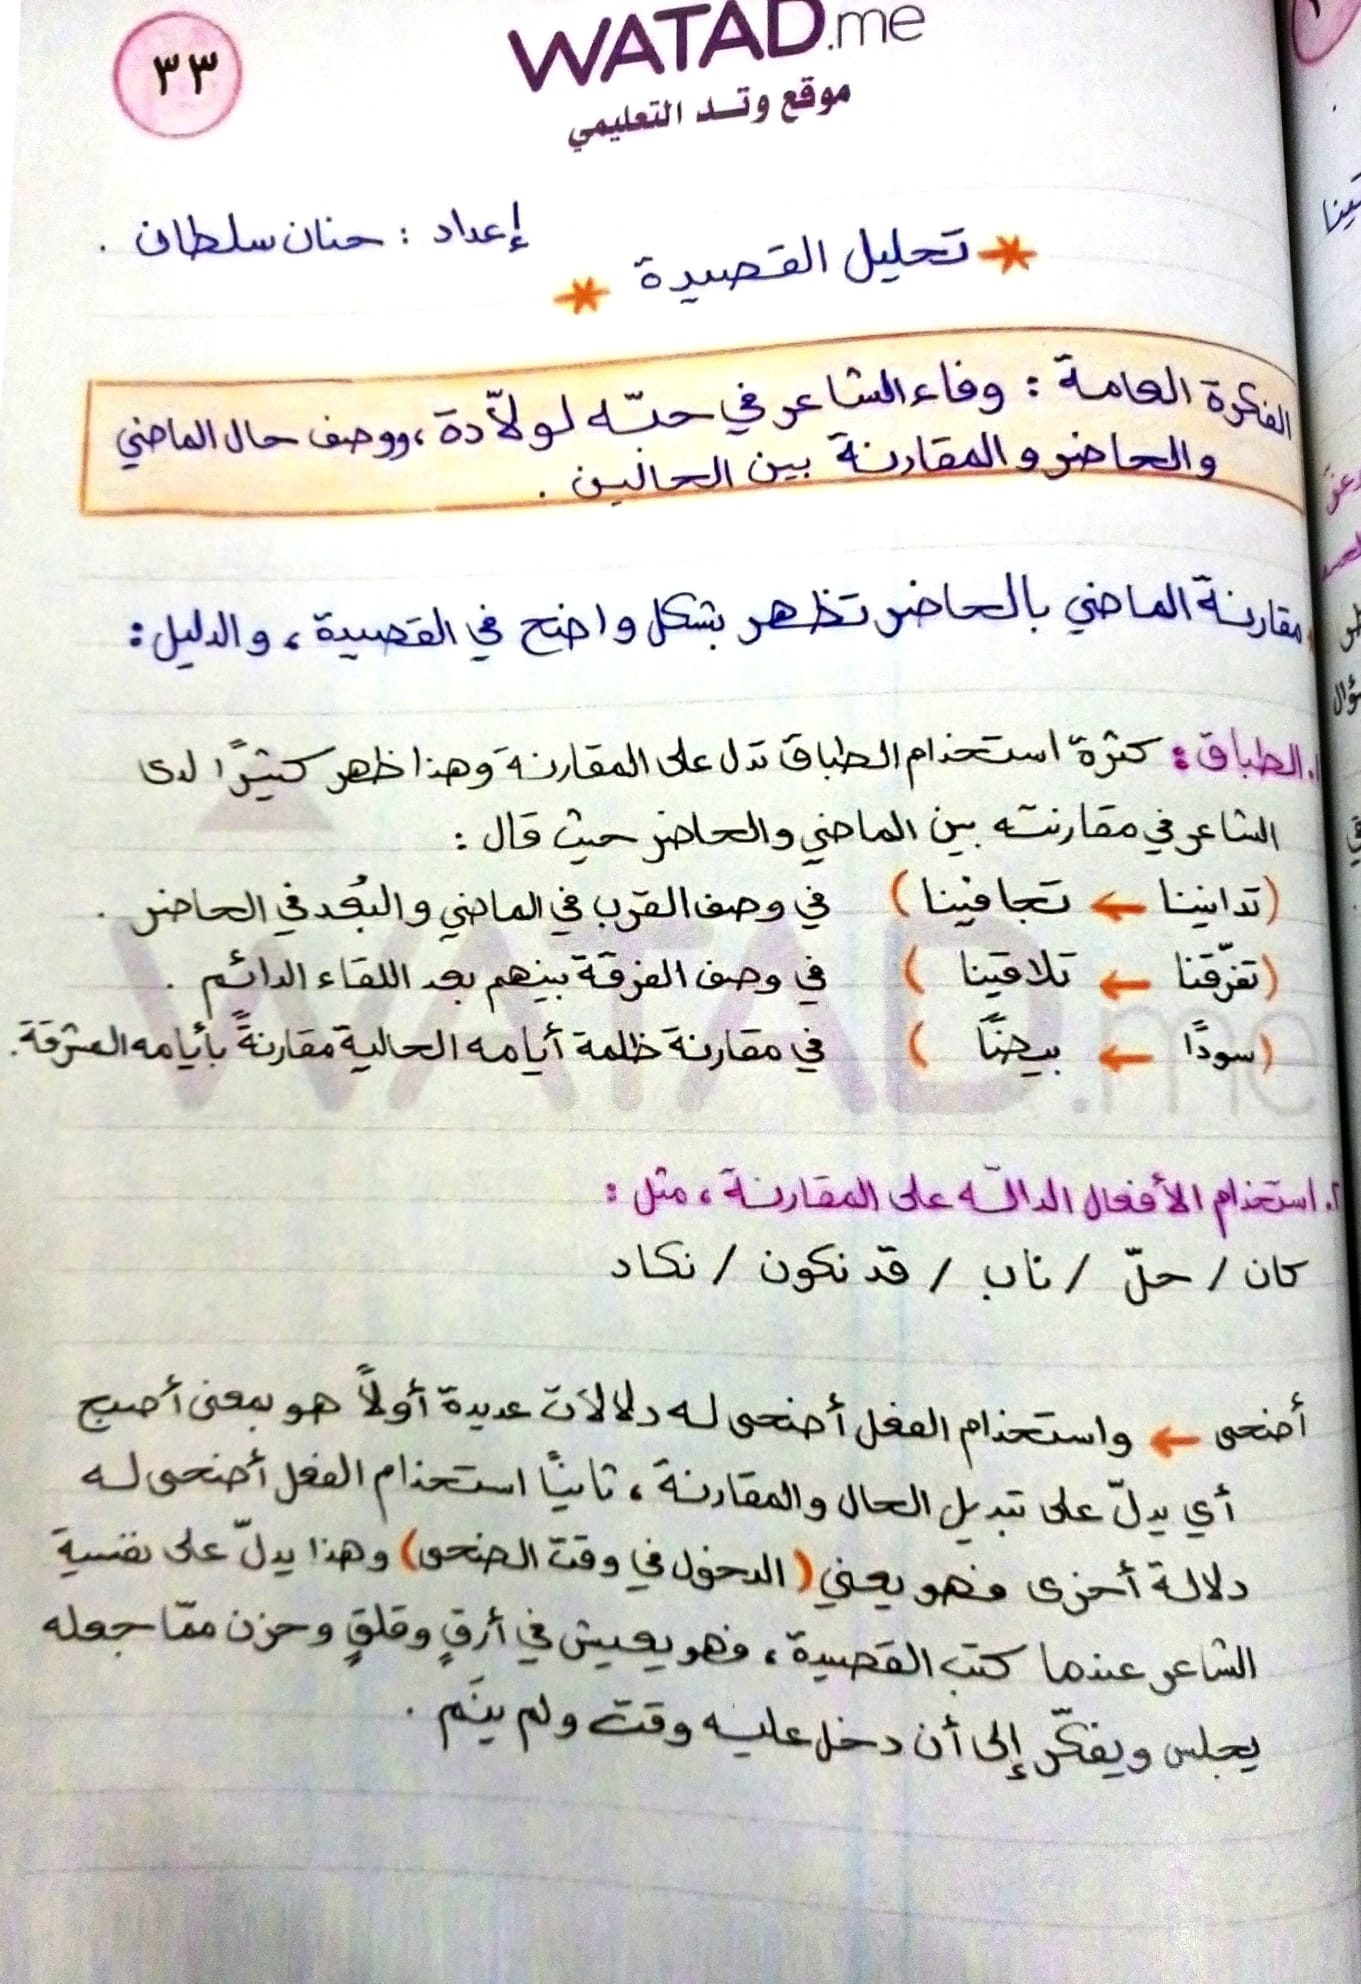 ٣٣
WATAD.me
موقع وتد التعليمي
إعداد : حنان سلطان .
* تحليل القصيدة *
الفكرة العامة : وفاء الشاعر في حبّه لولّادة ، ووصف حال الماضي
والحاضر والمقارنة بين الحالين .
مقارنة الماضي بالحاضر تظهر بشكل واضح في القصيدة ، والدليل :
١. الطباق : كثرة استخدام الطباق تدل على المقارنة وهذا ظهر كثيرًا لدى
الشاعر في مقارنته بين الماضي والحاضر حيث قال :
(تدانينا ← تجافينا) في وصف القرب في الماضي والبُعد في الحاضر .
(تفرّقنا ← تلاقينا ) في وصف الفرقة بينهم بعد اللقاء الدائم .
(سودًا ← بيضًا ) في مقارنة ظلمة أيامه الحالية مقارنةً بأيامه المشرقة.
٢. استخدام الأفعال الدالّه على المقارنة ، مثل :
كان / حلّ / ناب / قد نكون / نكاد
أضحى ← واستخدام الفعل أضحى له دلالات عديدة أولاً هو بمعنى أصبح
أي يدلّ على تبديل الحال والمقارنة ، ثانيًا استخدام الفعل أضحى له
دلالة أخرى فهو يعني (الدخول في وقت الضحى) وهذا يدلّ على نفسية
الشاعر عندما كتب القصيدة ، فهو يعيش في أرقٍ وقلقٍ وحزن ممّا جعله
يجلس ويفكّر إلى أن دخل عليه وقت ولم ينَم .
WATAD.me
تينا
ؤال